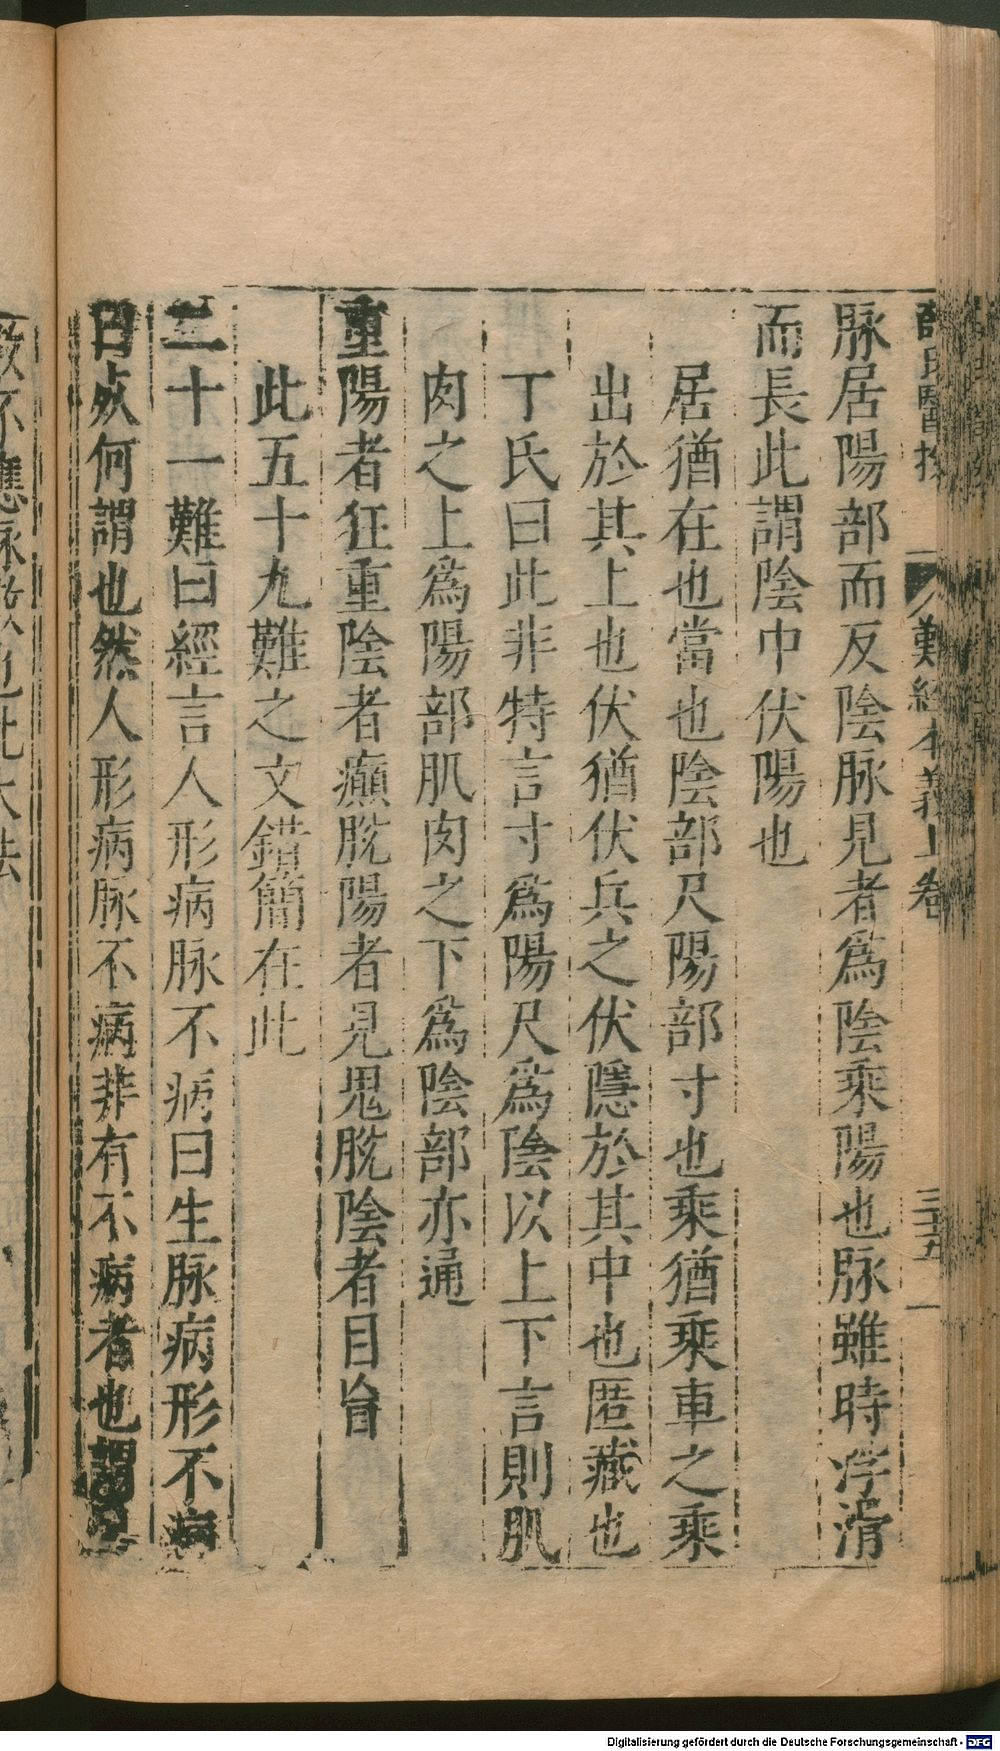 難經本義上卷
脉居陽部而反陰脉見者爲陰乘陽也脉雖時浮滑
而長此謂陰中伏陽也
居猶在也當也陰部尺陽部寸也乘猶乘車之乘
出於其上也伏猶伏兵之伏隱於其中也匿藏也
丁氏曰此非特言寸爲陽尺爲陰以上下言則肌
肉之上爲陽部肌肉之下爲陰部亦通
重陽者狂重陰者癲脫陽者見鬼脫陰者目盲
此五十九難之文錯簡在此
二十一難曰經言人形病脉不病曰生脉病形不病
曰死何謂也然人形病脉不病非有不病者也謂息
Digitalisierung gefördert durch die Deutsche Forschungsgemeinschaft - DFG